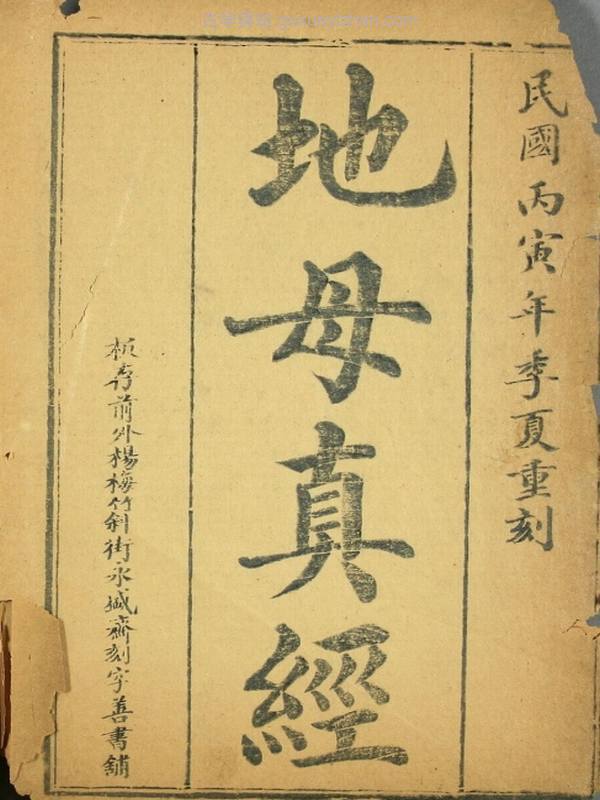 民國丙寅年季夏重刻
地母真經
板存前外楊梅竹斜街永盛齋刻字善書舖